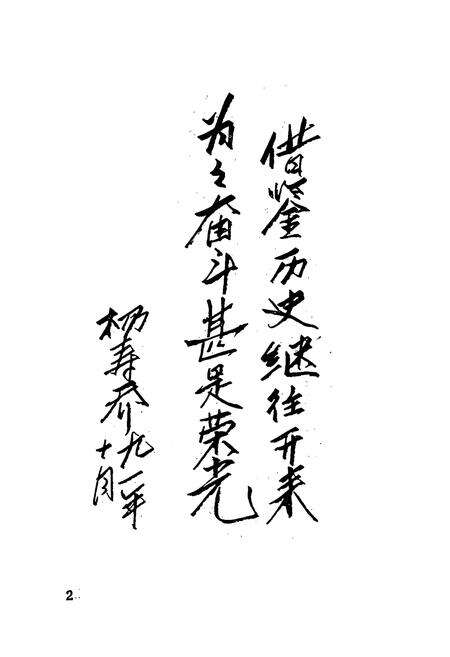 借鉴历史继往开来
为之奋斗甚是荣光
杨寿乔九一年
十月
2